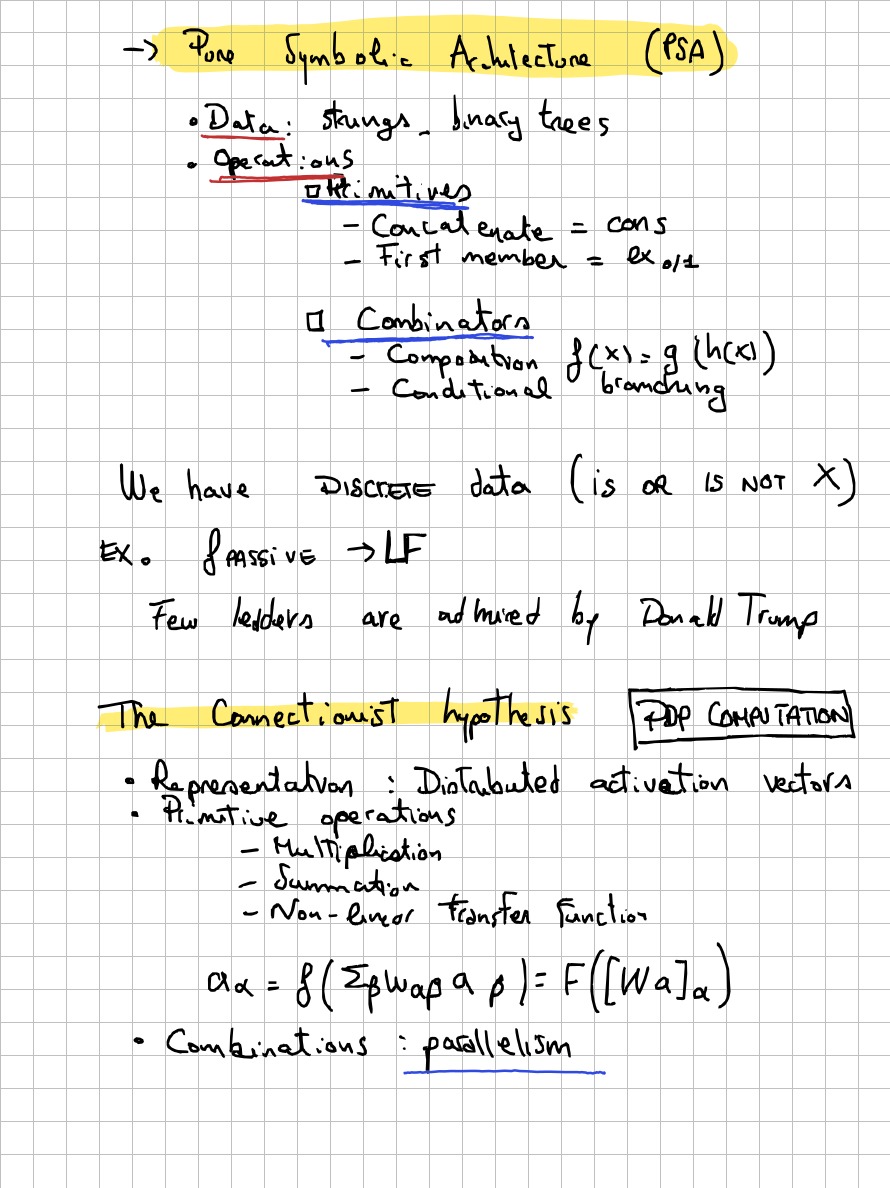 → Pure Symbolic Architecture (PSA)
• Data: strings, binary trees
• Operations
□ Primitives
- Concatenate = cons
- First member = ex 0/1
□ Combinators
- Composition f(x) = g(h(x))
- Conditional branching
We have DISCRETE data (is OR IS NOT X)
EX. f PASSIVE → LF
Few leaders are admired by Donald Trump
The Connectionist hypothesis PDP COMPUTATION
• Representation : Distributed activation vectors
• Primitive operations
- Multiplication
- Summation
- Non-linear transfer function
aα = f(Σβ Wαβ aβ) = F([Wa]α)
• Combinations : parallelism